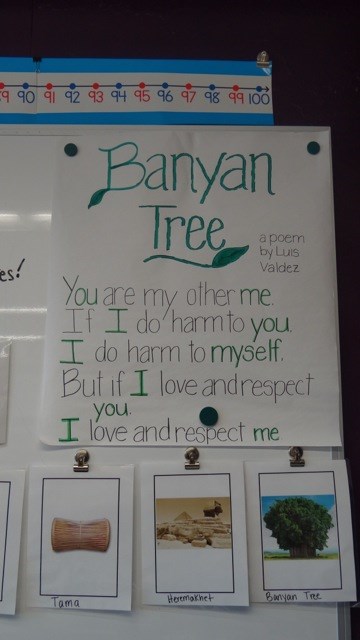 89 90 91 92 93 94 95 96 97 98 99 100
Banyan
Tree
a poem
by Luis
Valdez
es!
You are my other me.
If I do harm to you.
I do harm to myself.
But if I love and respect
you.
I love and respect me
Tama
Heremakhet
Banyan Tree